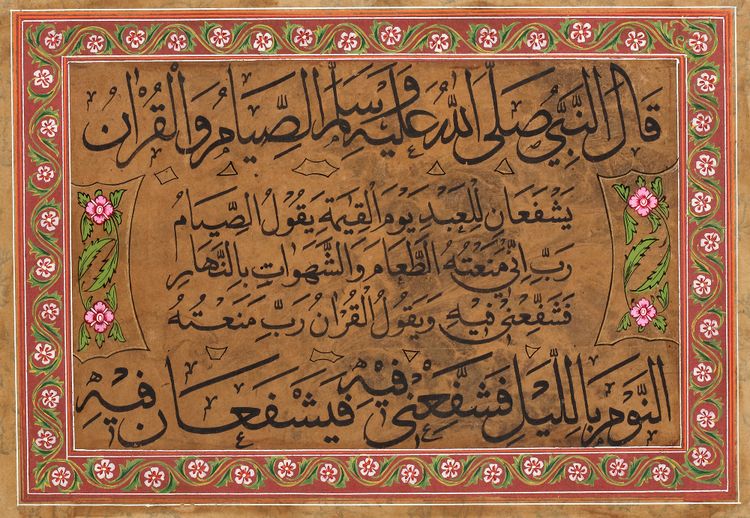 قَالَ النَّبِيُّ صَلَّى اللهُ عَلَيْهِ وَسَلَّمَ الصِّيَامُ وَالْقُرْاٰنُ
يَشْفَعَانِ لِلْعَبْدِ يَوْمَ الْقِيٰمَةِ يَقُولُ الصِّيَامُ
رَبِّ اِنِّي مَنَعْتُهُ الطَّعَامَ وَالشَّهَوٰاتِ بِالنَّهَارِ
فَشَفِّعْنِي فِيْهِ وَيَقُولُ الْقُرْاٰنُ رَبِّ مَنَعْتُهُ
النَّوْمَ بِاللَّيْلِ فَشَفِّعْنِي فِيْهِ فَيَشْفَعَانِ فِيْهِ